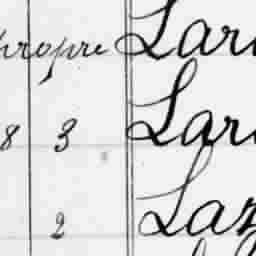 propre Lar
8 3 Lar
2 Laz